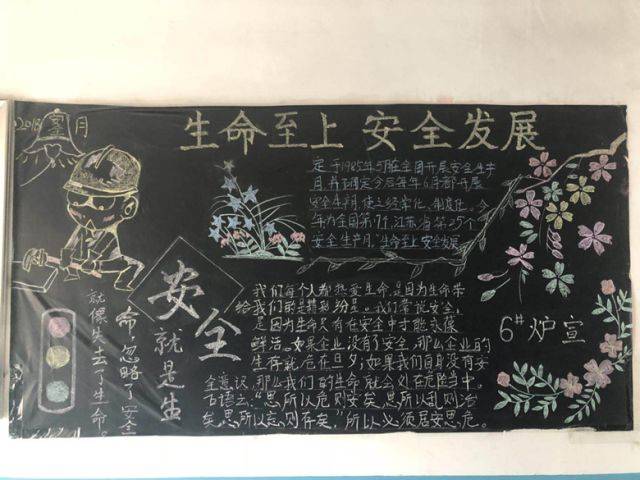 2018
月
生命至上 安全发展
定于1985年5月在全国开展安全生产
月,并确定今后每年6月都开展
安全生产月,使之经常化、制度化。今
年为全国第17个,江苏省第25个
安全生产月,"生命至上安全发展
安全
就是生
命,忽略了安全
就像失去了生命。
我们每个人都热爱生命,是因为生命带
给我们的是精彩纷呈。我们常说安全,
是因为生命只有在安全中才能永保
鲜活。如果企业没有了安全,那么企业的
生存就危在旦夕;如果我们自身没有安
全意识,那么我们的生命就会处在危险当中。
古语云:"思所以危则安矣,思所以乱则治
矣,思所以亡则存矣",所以必须居安思危。
6#炉宣